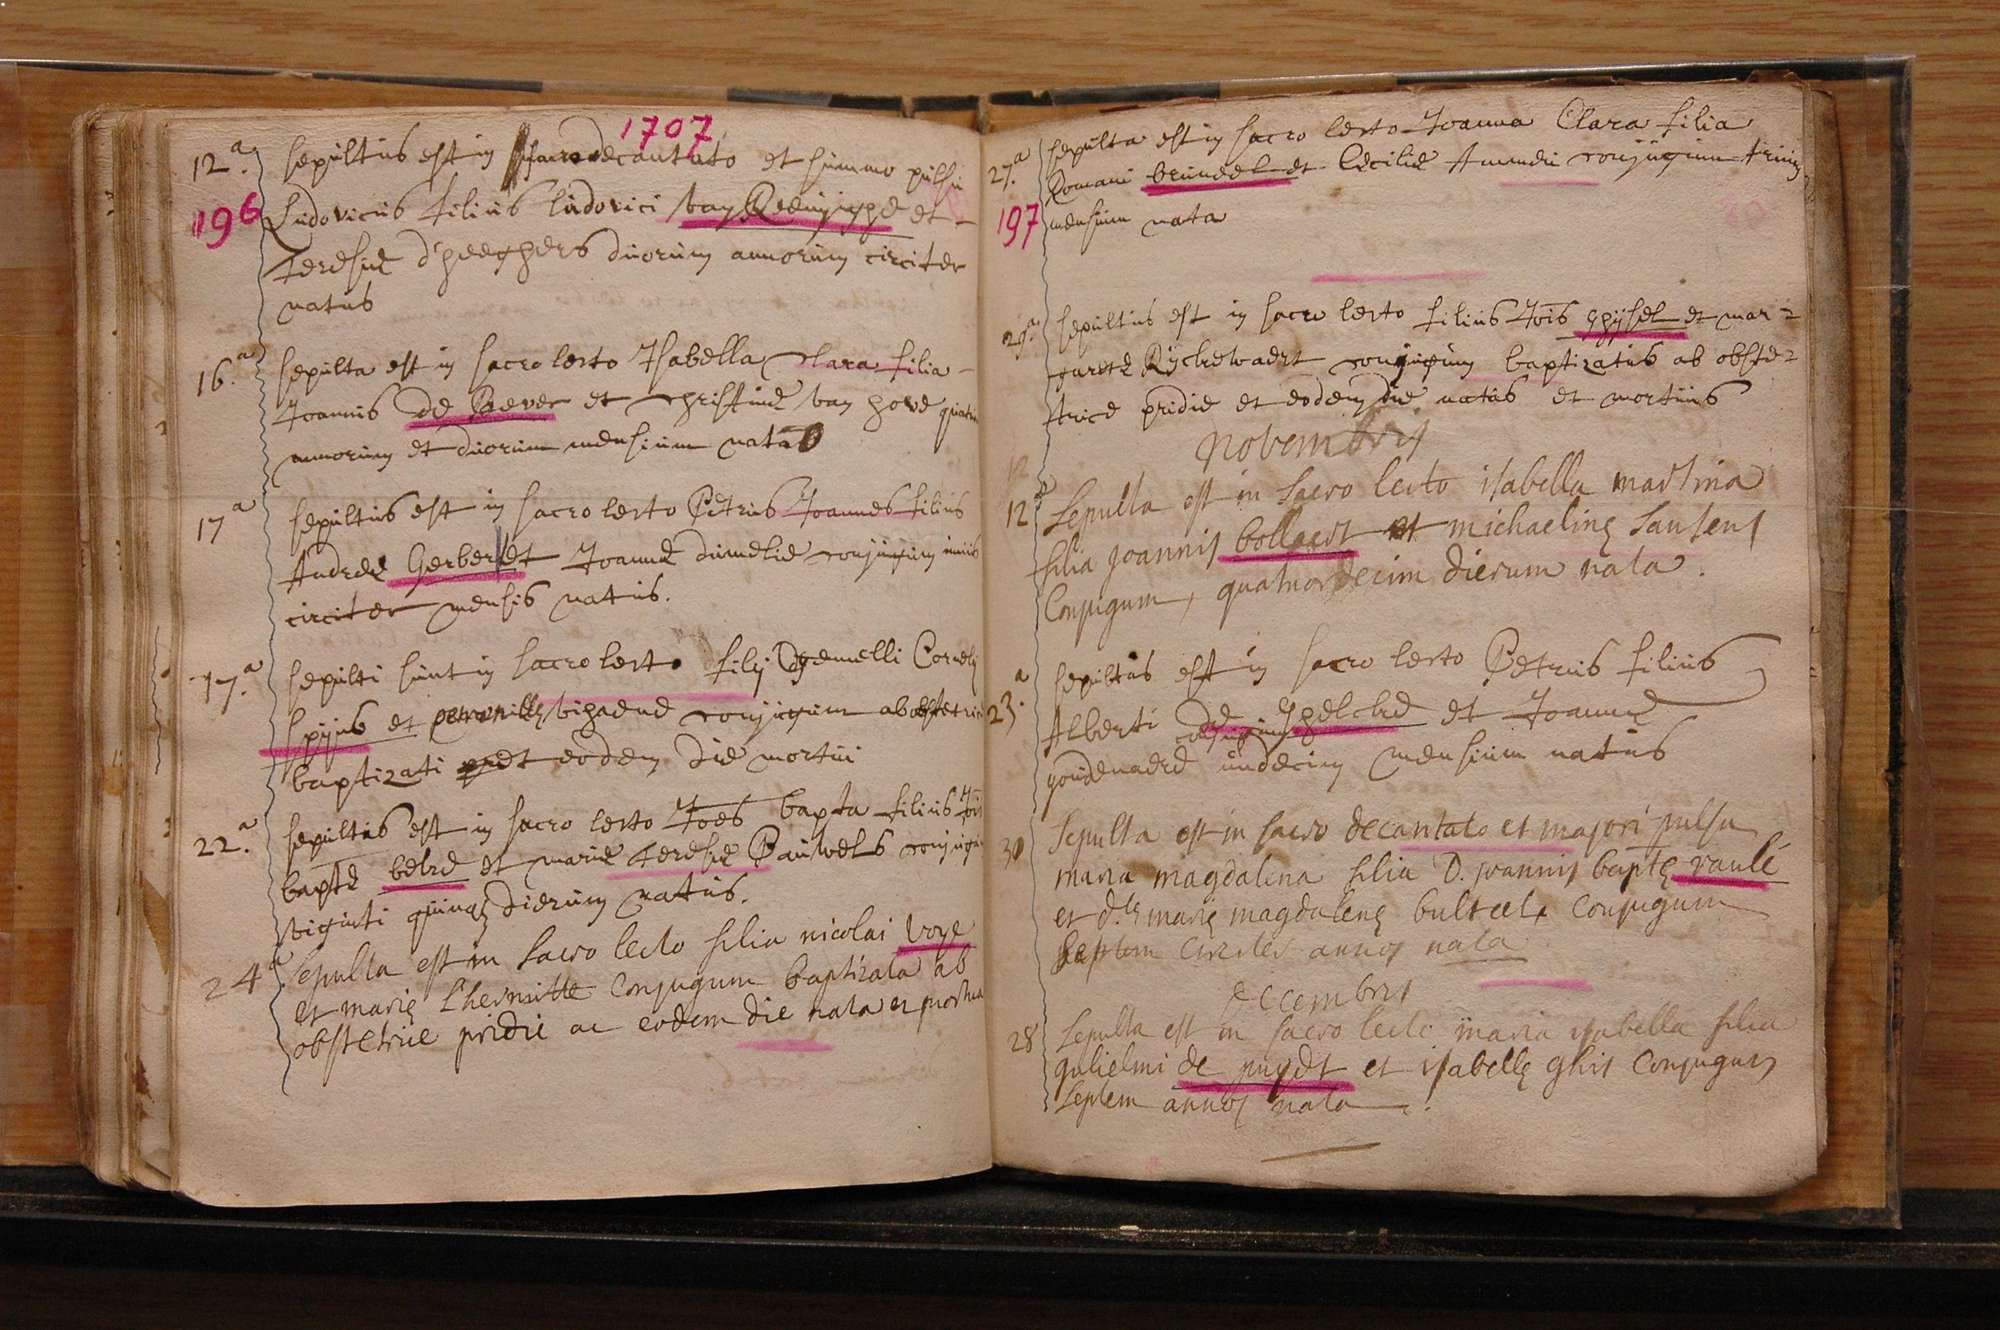 1707
12.a sepultus est in sacro decantato et summo pulsu
196 Ludovicus filius ludovici van Reenijnghe et
Teresiæ d'heeghers duorum annorum circiter
natus
16.a sepulta est in sacro lecto Isabella clara filia
Joannis de Bever et christinæ van hove quatuor
annorum et duorum mensium nata
17a sepultus est in sacro lecto Petrus Joannes filius
Andreæ Gerber et Joannæ conjugum unius
circiter mensis natus.
17.a sepulti sunt in sacro lecto filij gemelli Cornelij
spijus et petronillæ conjugum ab obstetrice
baptizati et eodem die mortui
22.a sepultus est in sacro lecto Joes bapta filius Jois
baptæ belve et mariæ Teresiæ Pauwels conjugum
viginti quinque dierum natus.
24a Sepulta est in sacro lecto filia nicolai voye
et marię L'hermitte conjugum baptizata ab
obstetrice pridie ac eodem die nata et mortua
27.a sepulta est in sacro lecto Joanna Clara filia
Romani bruneel et Ceciliæ Amandi conjugum trium
197 mensium nata
29.a sepultus est in sacro lecto filius Jois ghijsel et mar=
garetæ Rijckewaert conjugum baptizatus ab obste=
trice pridie et eodem die natus et mortuus
novembris
12a Sepulta est in sacro lecto isabella martina
filia joannis bollaert et michaelinę sansens
Conjugum, quatuordecim dierum nata.
23.a sepultus est in sacro lecto Petrus filius
Alberti de ghelcke et Joannæ
conjugum
goudenaere undecim mensium natus
30 Sepulta est in sacro decantato et majori pulsu
maria magdalena filia D. joannis baptę raulé
et d.læ marię magdalenę bulteel conjugum
septem circiter annos nata
decembris
28 Sepulta est in sacro lecto maria isabella filia
gulielmi de puydt et isabellę ghis conjugum
septem annos nata.